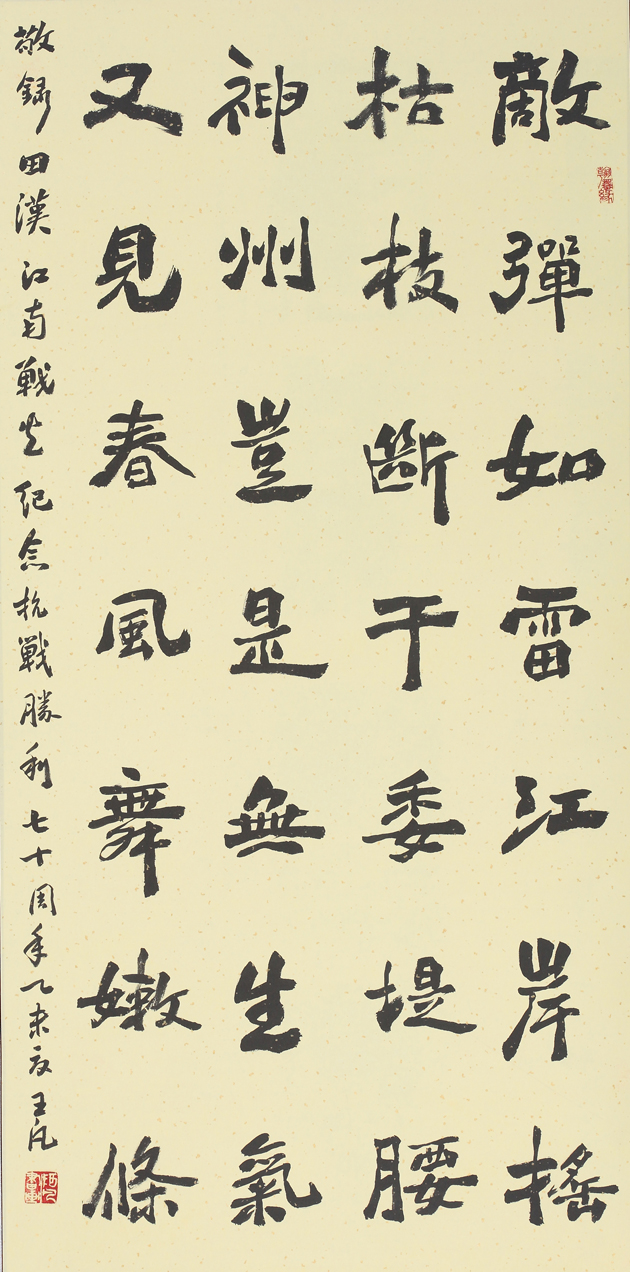 敵彈如雷江岸搖
枯枝斷干委堤腰
神州豈是無生氣
又見春風舞嫩條
敬録田漢江南戰災紀念抗戰勝利七十周年乙未夏王凡